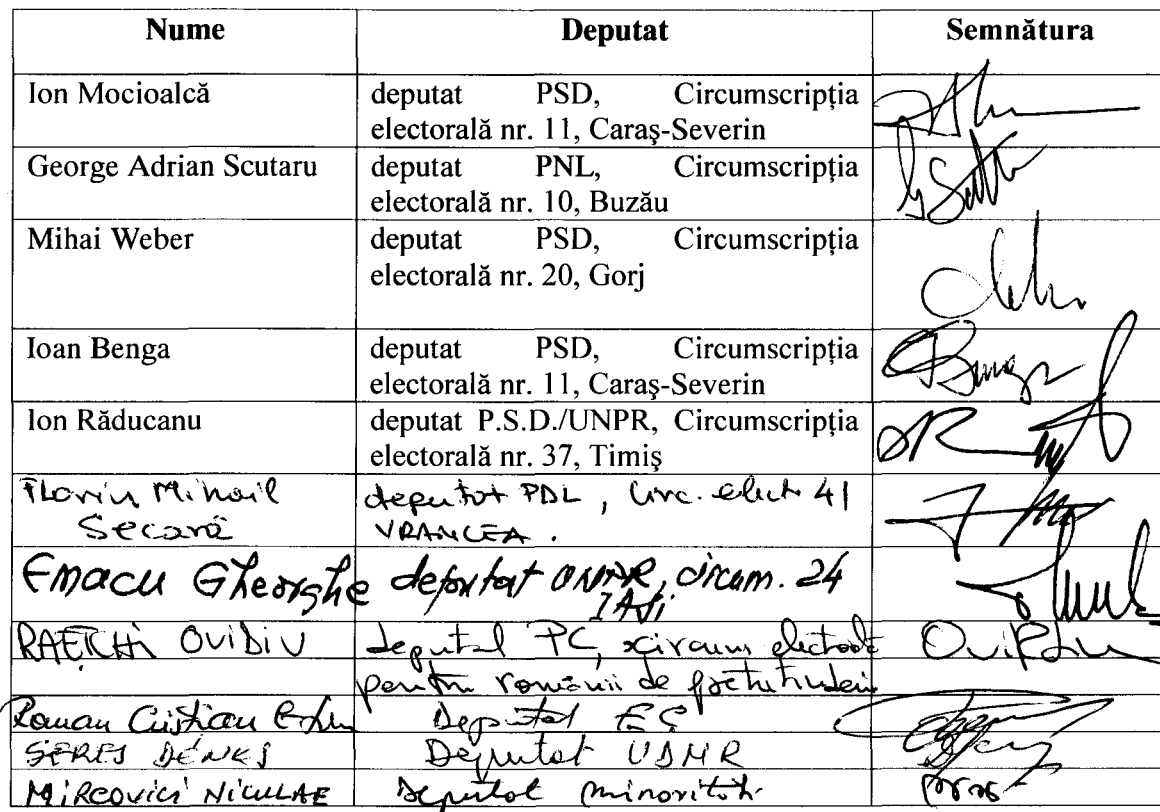 Nume Deputat Semnătura
Ion Mocioalcă deputat PSD, Circumscripția
electorală nr. 11, Caraş-Severin
George Adrian Scutaru deputat PNL, Circumscripția
electorală nr. 10, Buzău
Mihai Weber deputat PSD, Circumscripția
electorală nr. 20, Gorj
Ioan Benga deputat PSD, Circumscripția
electorală nr. 11, Caraş-Severin
Ion Răducanu deputat P.S.D./UNPR, Circumscripția
electorală nr. 37, Timiş
Florin Mihail deputat PDL, Circ. elect. 41
Secară VRANCEA.
Emacu Gheorghe deputat UNPR, circum. 24
IAȘI
RAEȚCHI OVIDIU deputat PC, circum electorală
pentru românii de
Roman Cristian Deputat
SERES DÉNES Deputat UDMR
MIRCOVICI NICULAE Deputat minorități